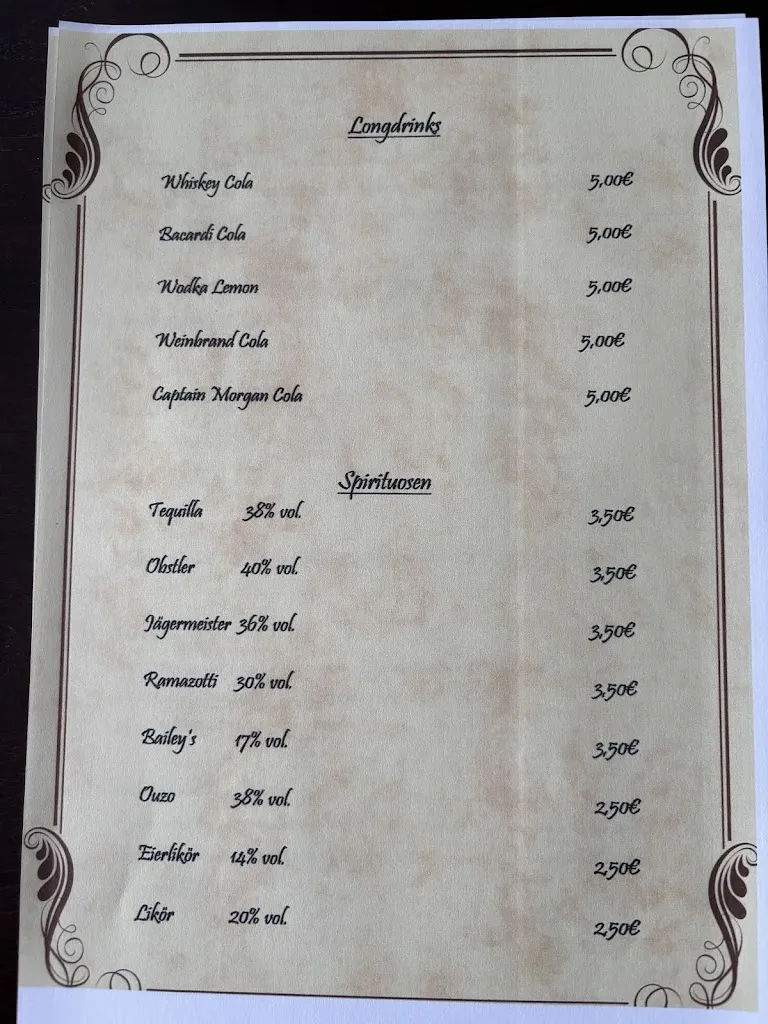 Longdrinks
Whiskey Cola 5,00€
Bacardi Cola 5,00€
Wodka Lemon 5,00€
Weinbrand Cola 5,00€
Captain Morgan Cola 5,00€
Spirituosen
Tequilla 38% vol. 3,50€
Obstler 40% vol. 3,50€
Jägermeister 36% vol. 3,50€
Ramazotti 30% vol. 3,50€
Bailey's 17% vol. 3,50€
Ouzo 38% vol. 2,50€
Eierlikör 14% vol. 2,50€
Likör 20% vol. 2,50€